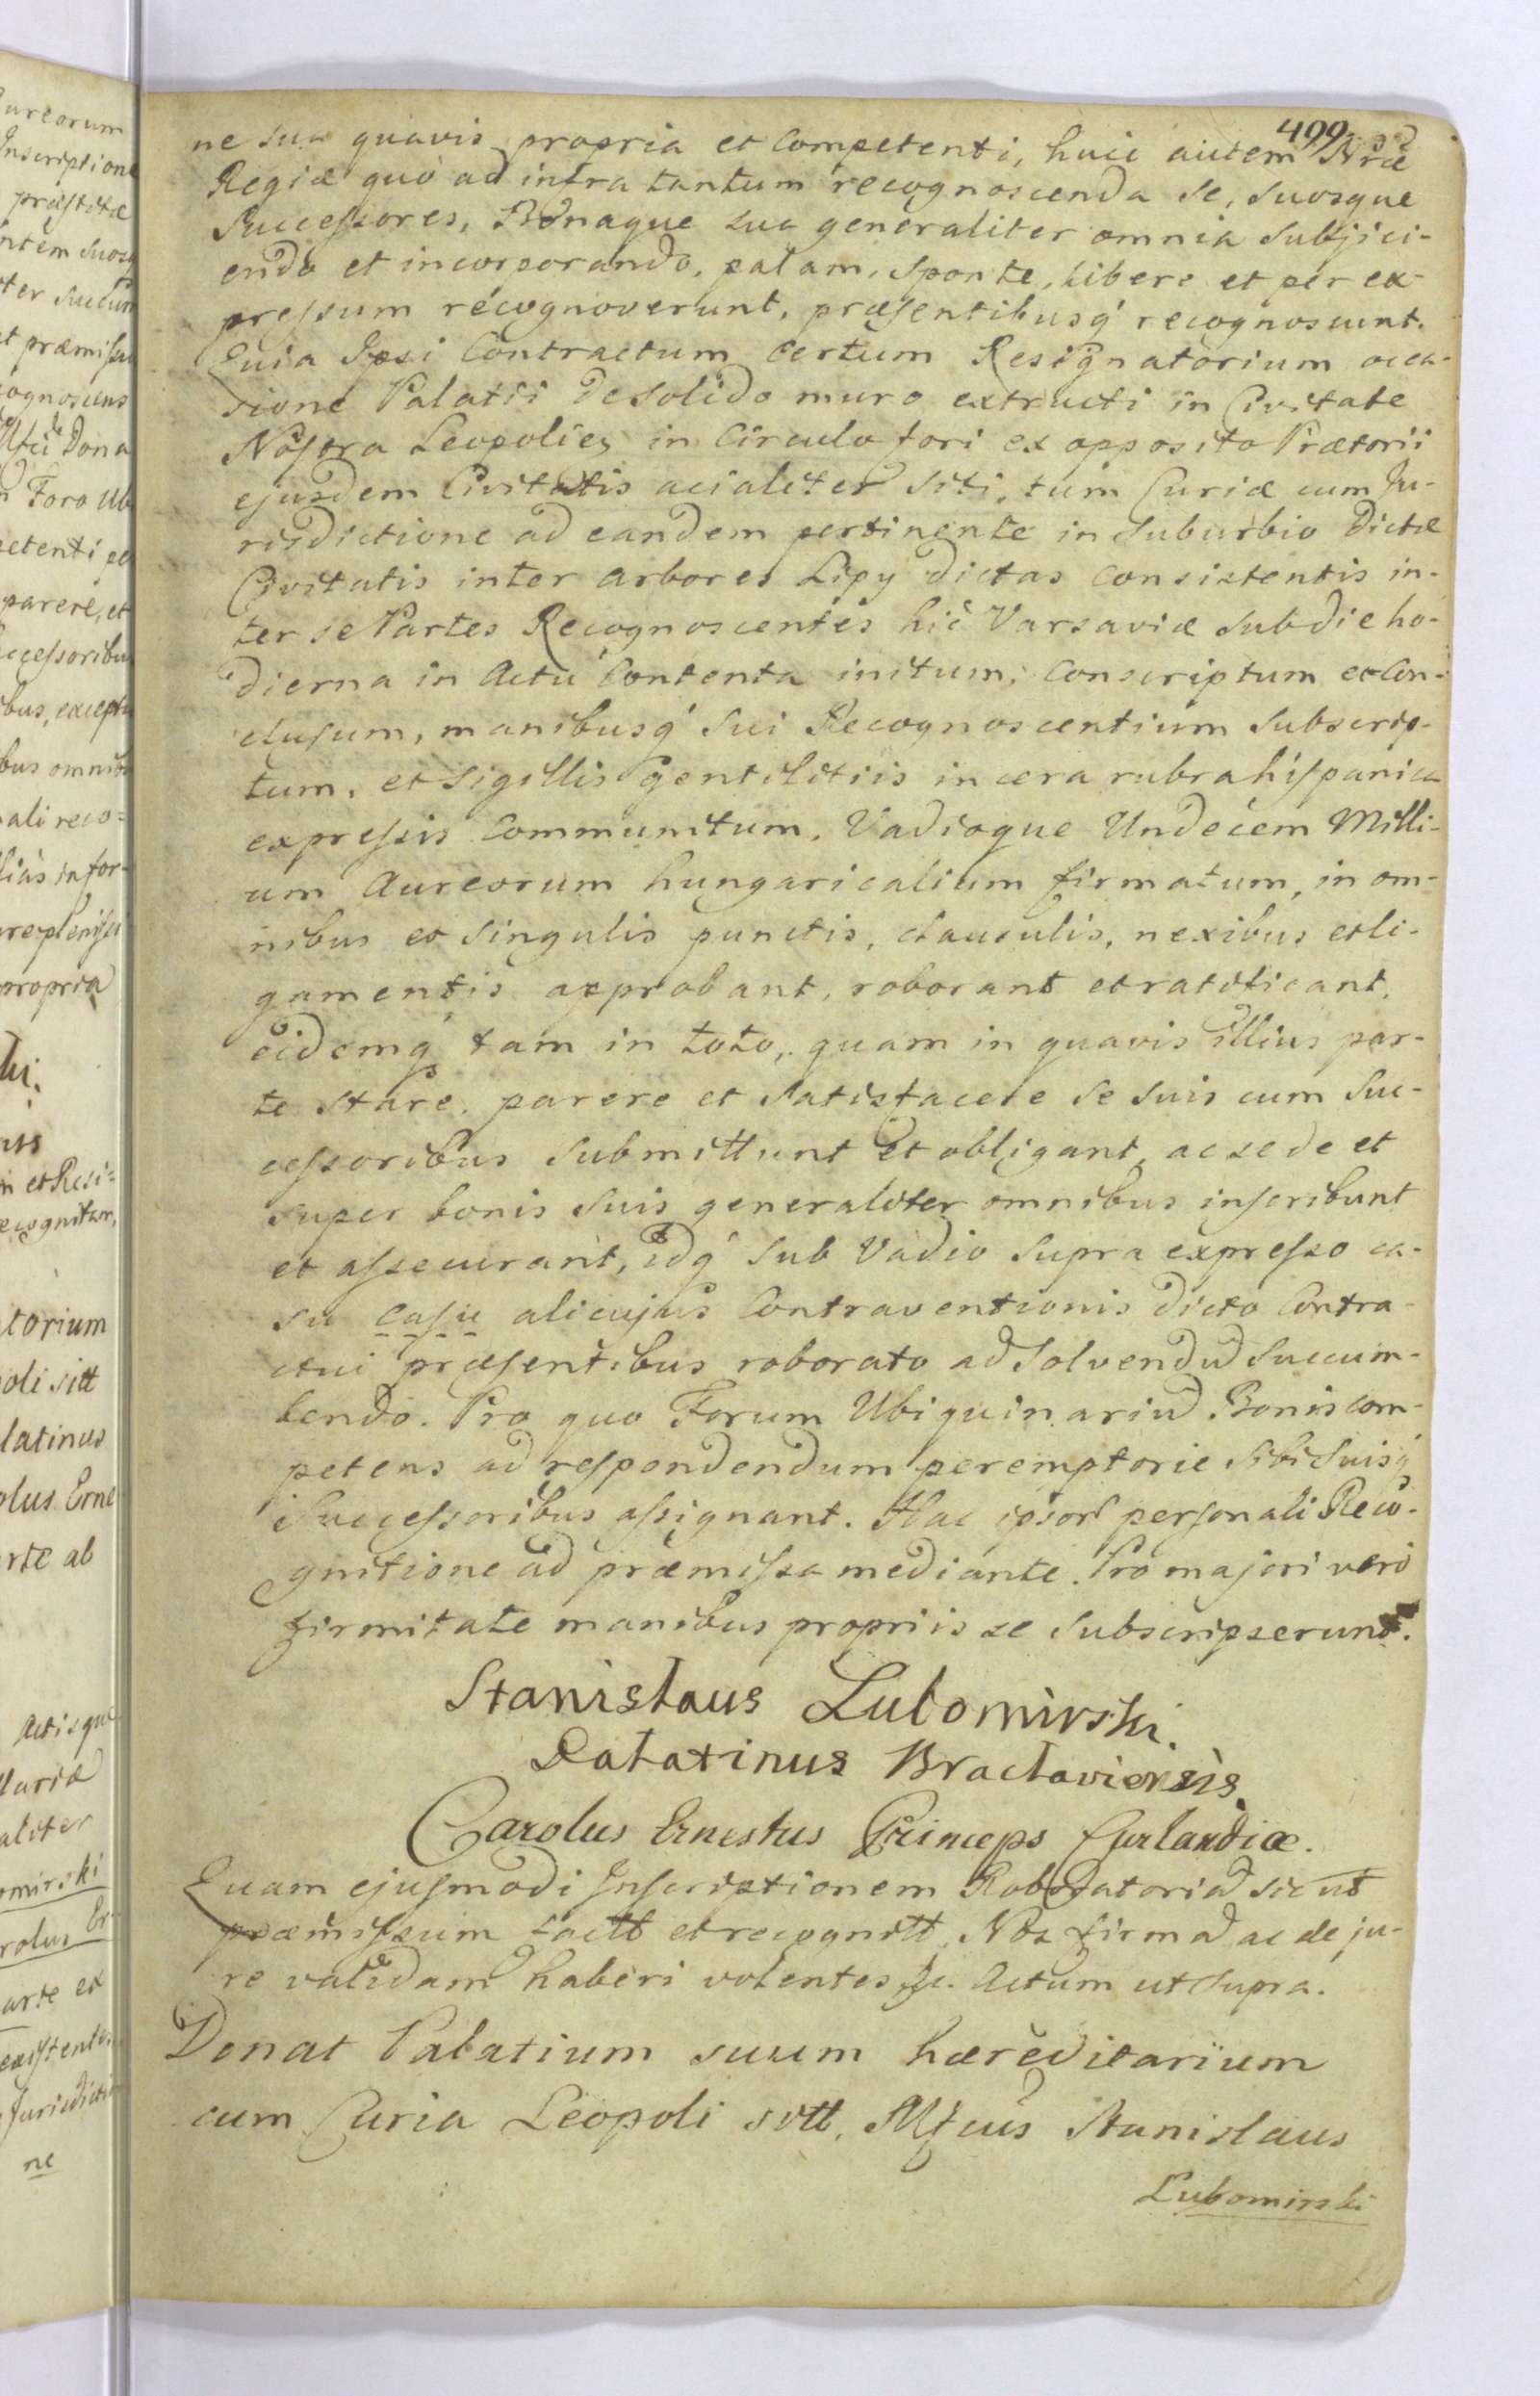 499
ne sua quavis propria et competenti, huic autem Nræ
Regiæ quò ad infra tantum recognoscenda se, suosque
Successores, Bonaque sua generaliter omnia subjici-
endo et incorporando, palam, sponte, libere et per ex-
pressum recognoverunt, præsentibusq́ recognoscunt.
Quia Ipsi Contractum certum Resignatorium occa-
sione Palatii de solido muro extructi in Civitate
Nostra Leopolien in Circulo fori ex opposito Prætorii
ejusdem Civitatis acialiter siti, tum Curiæ cum Ju-
risdictione ad eandem pertinente in suburbio dictæ
Civitatis inter arbores Lipy dictas consistentis in-
ter se Partes Recognoscentes hic Varsaviæ sub die ho-
dierna in Actu Contenta initum, Conscriptum et Con-
clusum, manibusq́ sui Recognoscentium subscrip-
tum, et sigillis gentilitiis in cera rubra hispanica
expressis communitum, Vadioque Undecem Milli-
um Aureorum hungaricalium firmatum, in om-
nibus et singulis punctis, clausulis, nexibus et li-
gamentis approbant, roborant et ratificant,
eidemq́ tam in toto, quam in quavis illius par-
te stare, parere et satisfacere se suis cum suc-
cessoribus submittunt et obligant, ac se de et
super bonis suis generaliter omnibus inscribunt
et assecurant, idq́ sub Vadio supra expresso ca-
su casu alicujus Contraventionis dicto Contra-
ctui præsentibus roborato ad solvendũ succum-
bendo. Pro quo Forum Ubiquinariũ Bonis com-
petens ad respondendum peremptorie sibi suisq́
Successoribus assignant. Hac ipsor personali Reco-
gnitione ad præmissa mediante. Pro majori vero
firmitate manibus propriis se subscripserunt.
Stanislaus Lubomirski.
Palatinus Braclaviensis.
Carolus Ernestus Princeps Curlandiæ.
Quam ejusmodi Inscriptionem Roboratoriã sic ut
præmissum factt et recognitt, Nos firmã ac de ju-
re validam haberi volentes &c. Actum ut supra.
Donat Palatium suum hæreditarium
cum Curia Leopoli sitt, Mfcus Stanislaus
Lubomirski